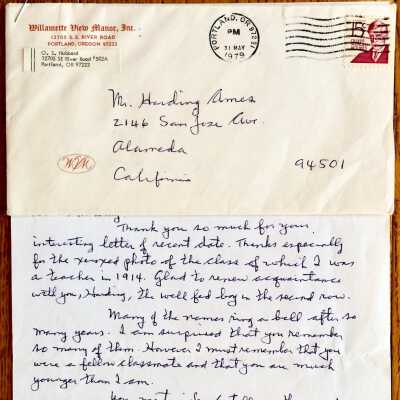 Willamette View Manor, Inc.
12705 S.E. RIVER ROAD
PORTLAND, OREGON 97222
O. S. Hubbard
12705 SE River Road #502A
Portland, OR 97222
PORTLAND, OR 972
PM
31 MAY
1979
15c
Mr. Harding Ames
2146 San Jose Ave.
Alameda
California
94501
WM
Thank you so much for your
interesting letter of recent date. Thanks especially
for the xeroxed photo of the class of which I was
a teacher in 1914. Glad to renew acquaintance
with you, Harding, the well fed boy in the second row.
Many of the names ring a bell after so
many years. I am surprised that you remember
so many of them. However I must remember that you
were a fellow classmate and that you are much
younger than I am.